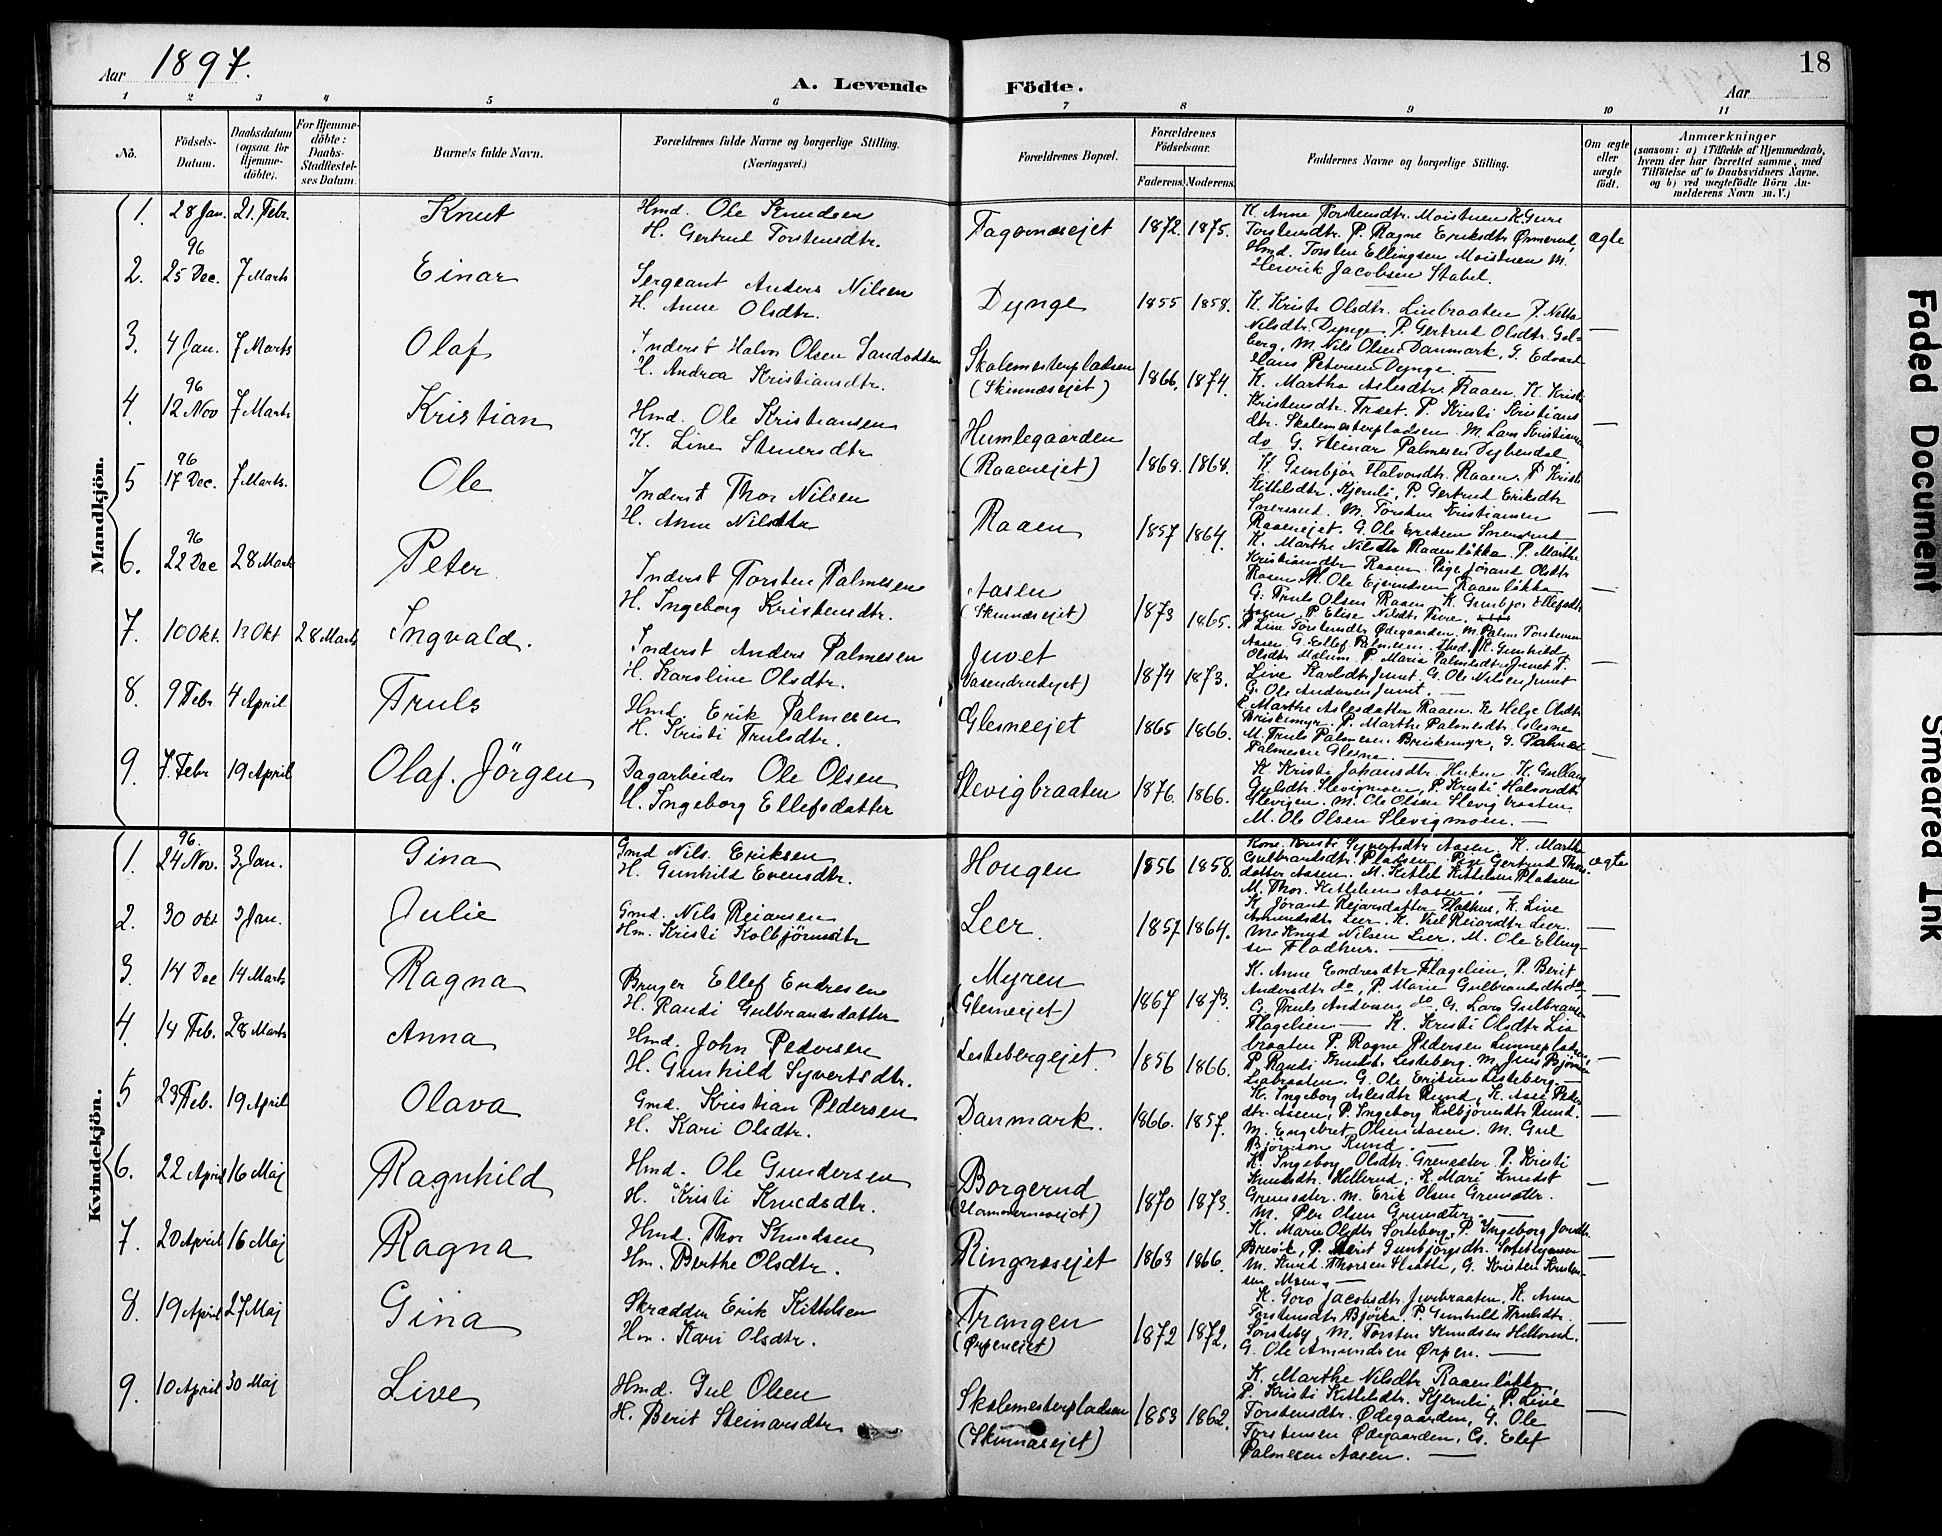 18
Aar 1897.
A. Levende Födte.
Aar
1 2 3 4 5 6 7 8 9 10 11
No.
Födsels-Datum.
Daabsdatum (ogsaa for Hjemme-döbte).
For Hjemme-döbte: Daabs-Stadfæstel-ses Datum.
Barnets fulde Navn.
Forældrenes fulde Navne og borgerlige Stilling. (Næringsvei.)
Forældrenes Bopæl.
Forældrenes Födselsaar.
Faderens. Moderens.
Faddernes Navne og borgerlige Stilling.
Om ægte eller uægte födt.
Anmærkninger
(saasom: a) i Tilfælde af Hjemmedaab, hvem der har forrettet samme, med Tilföielse af to Daabsvidners Navne. og b) ved uægtefödte Börn An-melderens Navn m. V.)
Mandkjön.
1. 28 Jan. 21. Febr. Knut
Hmd. Ole Knudsen
H. Gertrud Torstensdtr.
Fagernæsejet 1872. 1875.
K. Anne Torstensdtr. Moistuen K. Guri
Torstensdtr. P. Ragne Eriksdtr Ørnerud,
Hmd. Torsten Ellingsen Moistuen M.
Henrik Jacobsen Stabel.
ægte
96
2. 25 Dec. 7 Marts Einar
Sergeant Anders Nilsen
H. Anne Olsdtr.
Dynge 1855 1858.
K. Kristi Olsdtr. Linbraaten P. Netta
Nilsdtr. Dynge. P. Gertrud Olsdtr. Gol-
berg, M. Nils Olsen Danmark, G. Edvart
Hans Petersen Dynge. —
3. 4 Jan. 7 Marts Olaf
Inderst Halvor Olsen Sandodden
H. Andrea Kristiansdtr.
Skolemesterpladsen
(Skinnæsejet) 1866. 1874.
K. Martha Aslesdtr. Raaen, K. Kristi
Kristensdtr. Træet. P. Kristi Kristians
dtr. Skolemesterpladsen. M. Lars Kristiansen
do G. Steinar Palmesen Dybendal
96
4. 12 Nov 7 Marts Kristian
Hmd. Ole Kristiansen
K. Line Stenersdtr
Humlegaarden
(Raaenejet) 1868. 1868.
K. Gunbjør Halvorsdtr. Raaen. P. Kristi
Kittelsdtr. Kjernli, P. Gertrud Eriksdtr
Snersrud. M. Torsten Kristiansen
Raaenejet. G. Ole Eriksen Snersrud
96
5 17 Dec. 7 Marts. Ole
Inderst Thor Nilsen
H. Anne Nilsdtr
Raaen 1857 1864.
K. Marthe Nilsdtr Raaenløkka. P. Marthe
Kristiansdtr Raaen. Pige Jørand Olsdtr
Raaen. M. Ole Ejvindsen Raaenløkka
G. Truls Olsen Raaen.
96
6. 22 Dec 28 Marts Peter
Inderst Torsten Palmesen
H. Ingeborg Kristensdtr.
Aasen
(Skinnæsejet) 1873 1865.
K. Gunbjør Ellefsdtr
Aasen, P. Elise Nilsdtr Ture.
P. Line Torstensdtr Ødegaarden. M. Palme Torstensen
Aasen. G. Ellef Palmesen.
7. 10 Okt. 13 Okt 28 Marts Ingvald.
Inderst Anders Palmesen
H. Karoline Olsdtr.
Juvet
(Vasendrudejet) 1874 1873.
K. Gunhild
Olsdtr Molum. P. Maria Palmesdtr Juvet P.
Line Karlsdtr Juvet. G. Ole Nilsen Juvet
G. Ole Andersen Juvet. —
8. 9 Febr 4 April Truls
Hmd Erik Palmesen
H. Kristi Trulsdtr.
Glesneejet 1865 1866.
K. Marthe Aslesdatter Raaen. K. Helge Olsdtr
Briskemyr. P. Marthe Palmesdtr Glesne
M. Truls Palmesen Briskemyr, G. Palme
Palmesen Glesne. —
9. 7. Febr 19 April Olaf. Jörgen
Dagarbeider Ole Olsen
H. Ingeborg Ellefsdatter
Slevigbraaten 1876. 1866.
Slevigen. M. Ole Olsen Slevigbraaten
M. Ole Olsen Slevigmoen. —
Kvindekjön.
96.
1. 24 Nov. 3 Jan. Gina
Gmd Nils. Eriksen
H. Gunhild Evensdtr.
Hougen 1856 1858.
Kone Kristi Syvertsdtr Aasen, K. Marthe
Gulbrandsdtr. Pladsen. Pige Gertrud Thors
datter Aasen. M. Kittel Kittelsen Pladsen
M. Thor. Kittelsen Aasen. —
ægte
2. 30 Okt 3 Jan. Julie
Gmd. Nils Reiarsen
Hm. Kristi Kolbjörnsdtr
Leer. 1857 1864.
K. Jørand Rejarsdatter Fladhus, K. Live
Amundsdtr Leer. K. Viel Reiarsdtr Leer.
M. Knud Nilsen Leer. M. Ole Elling-
sen Fladhus. —
3. 14 Dec 14 Marts Ragna
Bruger Ellef Endresen
H. Randi Gulbrandsdatter
Myren
(Glesneejet) 1867 1873.
K. Anne Endresdtr Flagelien, P. Berit
Andersdtr do, P. Marie Gulbrandsdtr do,
G. Truls Andersen do G. Lars Gulbrandsen
Flagelien —
4. 14 Feb. 28 Marts Anna
Hmd. John Pedersen
H. Gunhild Syvertsdtr.
Lestebergejet. 1856 1866.
K. Kristi Olsdtr Lia
braaten P. Ragne Pedersen Lunneplatsen,
P. Randi Knudsdtr. Lesteberg. M. Jens Bjørnsen
Liabraaten, G. Ole Eriksen Lesteberg. —
5 23 Feb. 19 April Olava
Gmd. Kristian Pedersen
H. Kari Olsdtr.
Danmark. 1866. 1857.
K. Ingeborg Aslesdtr Rund, K. Aase Peders
dtr. Aasen, P. Ingeborg Kolbjørnsdtr Rund.
M. Engebret Olsen Aasen. M. Gul
Bjørnson Rund. —
6. 22 April 16 Maj Ragnhild
Hmd. Ole Gundersen
H. Kristi Knudsdtr.
Borgerud
(Hammersneejet) 1870 1873.
K. Ingeborg Olsdtr. Grensæter. P. Kristi
Knudsdtr. Hellerud. K. Mari Knudsdt
Grensæter. M. Erik Olsen Grensæter.
M. Per Olsen Grensæter. —
7. 20 April 16 Maj Ragna
Hmd. Thor Knudsen
Hm. Berthe Olsdtr.
Ringnæsejet 1863 1866.
K. Marie Olsdtr Sorteberg, P. Ingeborg
P. Berit Gunbjørgsdtr.
M. Knud Thorsen Slaatto, G. Kristen Kristen-
sen Moen. —
8. 19 April 27 Maj Gina
Skrædder Erik Kittelsen
Hm. Kari Olsdtr.
Trangen
(Ørpenejet) 1872 1872.
K. Goro Jacobsdtr. Juvbraaten, K. Anna
Torstensdtr Bjørke. P. Gunhild Trulsdtr.
Sønsteby, M. Torsten Knudsen Hellerud.
G. Ole Amundsen Ørpen. —
9. 10 April 30 Maj Live
Hmd. Gul Olsen
H. Berit Steinarsdtr
Skolemesterpladsen
(Skinnæsejet) 1853 1862.
K. Marthe Nilsdtr. Raaenløkka
P. Kristi Kittelsdtr. Kjernli, P. Live
Torstensdtr. Ødegaarden, G. Ole
Torstensen Ødegaarden, G. Elef
Palmesen Aasen. —
Faded Document
Smeared Ink